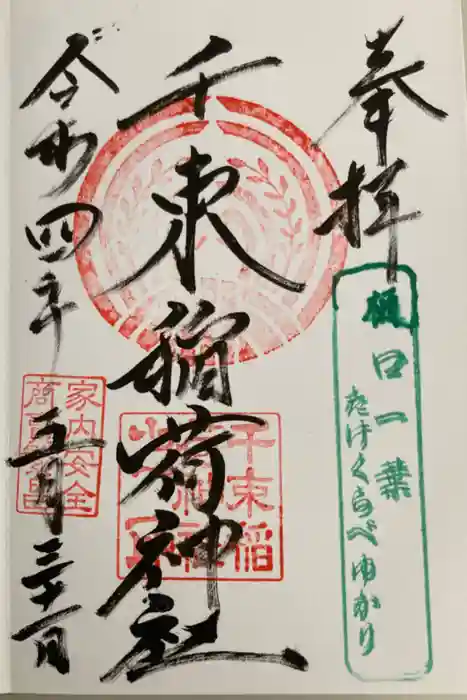 奉拝
樋口一葉
たけくらべゆかり
千束稲荷神社
千束稲
令和四年
五月三十一日
家内安全
商売繁昌